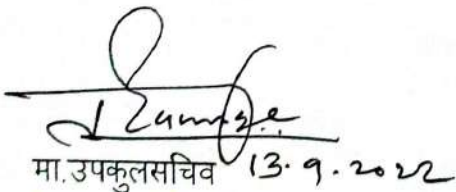 मा.उपकुलसचिव 13.9.2022